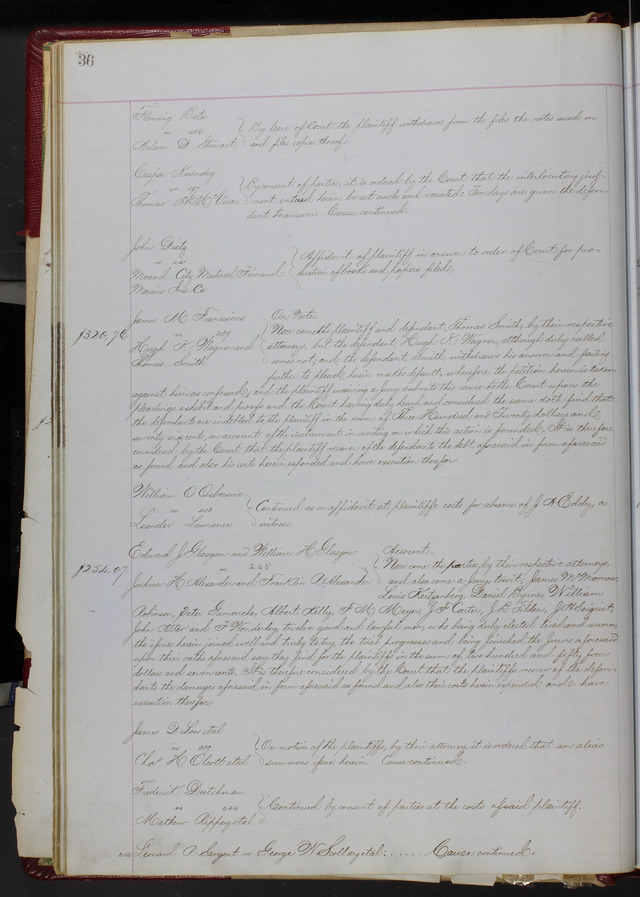 36
Fleming Bates
vs
Adam D Stewart } By leave of Court the plaintiff withdraws from the files the notes sued on
and files copies thereof
Caspar Kuendig
vs
Thomas A McVicar } By consent of parties, it is ordered by the Court, that the interlocutory judg-
ment entered herein be set aside and vacated. Ten days are given the defen-
dant to answer. Cause continued.
John Dietz
vs
Mound City Mutual Fire and
Marine Ins Co } Affidavit of plaintiff in answer to order of Court for pro-
duction of books and papers filed
$320.76
James M Franciscus
vs 209
Hugh K Wagner and
Thomas Smith } On Note
Now come the plaintiff and defendant, Thomas Smith, by their respective
attorneys, but the defendant, Hugh K Wagner, although duly called
comes not, and the defendant, Smith, withdraws his answer and failing
further to plead herein makes default, wherefore the petition herein is taken
against him as confessed; and the plaintiff waiving a jury submits this cause to the Court upon the
pleadings exhibit and proofs and the Court having duly heard and considered the same doth find that
the defendants are indebted to the plaintiff in the sum of Three Hundred and Twenty dollars and
seventy six cents, on account of the instrument in writing on which this action is founded. It is therefore
considered by the Court that the plaintiff recover of the defendants the debt aforesaid in form aforesaid
as found and also his costs herein expended and have execution therefor
William O Osborne
vs 210
Leander Lawrence } Continued as on affidavit at plaintiffs costs for absence of J A Eddy, a
witness.
$254.07
Edward J Glasgow and William H Glasgow
vs 255
Joshua H Alexander and Franklin P Alexander } Account.
Now come the parties, by their respective attorneys,
and also come a jury, towit; James McMorrow,
Louis Keitzenberg, Daniel Byrne, William
Robinson, Peter Gamache, Albert Kelby, F M Meyer, J F Carter, J B Tilden, J H Seigrist,
John Ritter and F Wonderley, twelve good and lawful men, who being duly elected tried and sworn
the issue herein joined well and truly to try, the trial progresses and being finished the Jurors aforesaid
upon their oaths aforesaid say they find for the plaintiffs in the sum of two hundred and fifty four
dollars and seven cents. It is therefore considered by the Court that the plaintiffs recover of the defen-
dants the damages aforesaid in form aforesaid as found and also their costs herein expended and have
execution therefor
James D Low et al
vs
Chas H Olcott et al } On motion of the plaintiffs, by their attorney, it is ordered that an alias
summons issue herein. Cause continued.
Frederick Dutchman
vs 220
Mathew Rippey et al } Continued by consent of parties at the costs of said plaintiff.
Leonard R Sargent vs George W Scollay et al. . . . . . Cause continued.